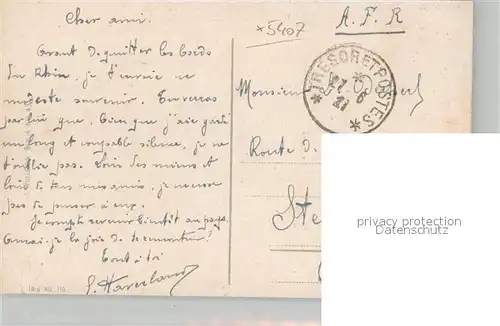 Cher ami.
Avant de quitter les bords
du Rhin, je t'envoie ce
modeste souvenir. Tu verras
par lui que, bien que j'aie gardé
un long et coupable silence, je ne
t'oublie pas. Loin des miens et
loin de tous mes amis, je ne cesse
pas de penser à eux.
Je compte revenir bientôt au pays,
Aurai-je la joie de te rencontrer?
Tout à toi
*5407
A.F.R
* TRESOR ET POSTES *
21
Monsieur
Route d
Ste
privacy protection
Datenschutz